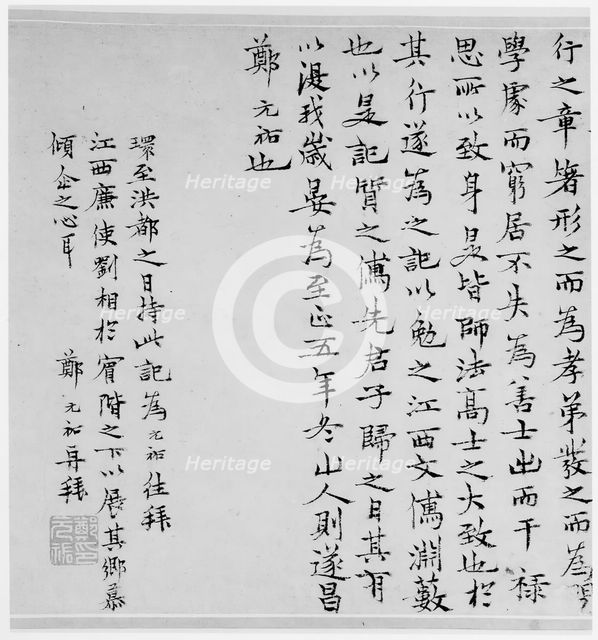 行之章箸形之而為孝弟發之而為
學處而窮居不失為善士出而干祿
思所以致身是皆師法高士之大致也於
其行遂為之記以勉之江西文儒淵藪
也以是記質之儒先君子歸之日其有
以湜我歲晏為至正五年冬山人則遂昌
鄭元祐也
環至洪都之日持此記為元祐往拜
江西廉使劉相於賓階之下以展其鄉慕
傾企之心耳
鄭元祐再拜
鄭元祐印
Heritage
Heritage
Heritage
Heritage
Heritage
Heritage
Heritage
Heritage
Heritage
C